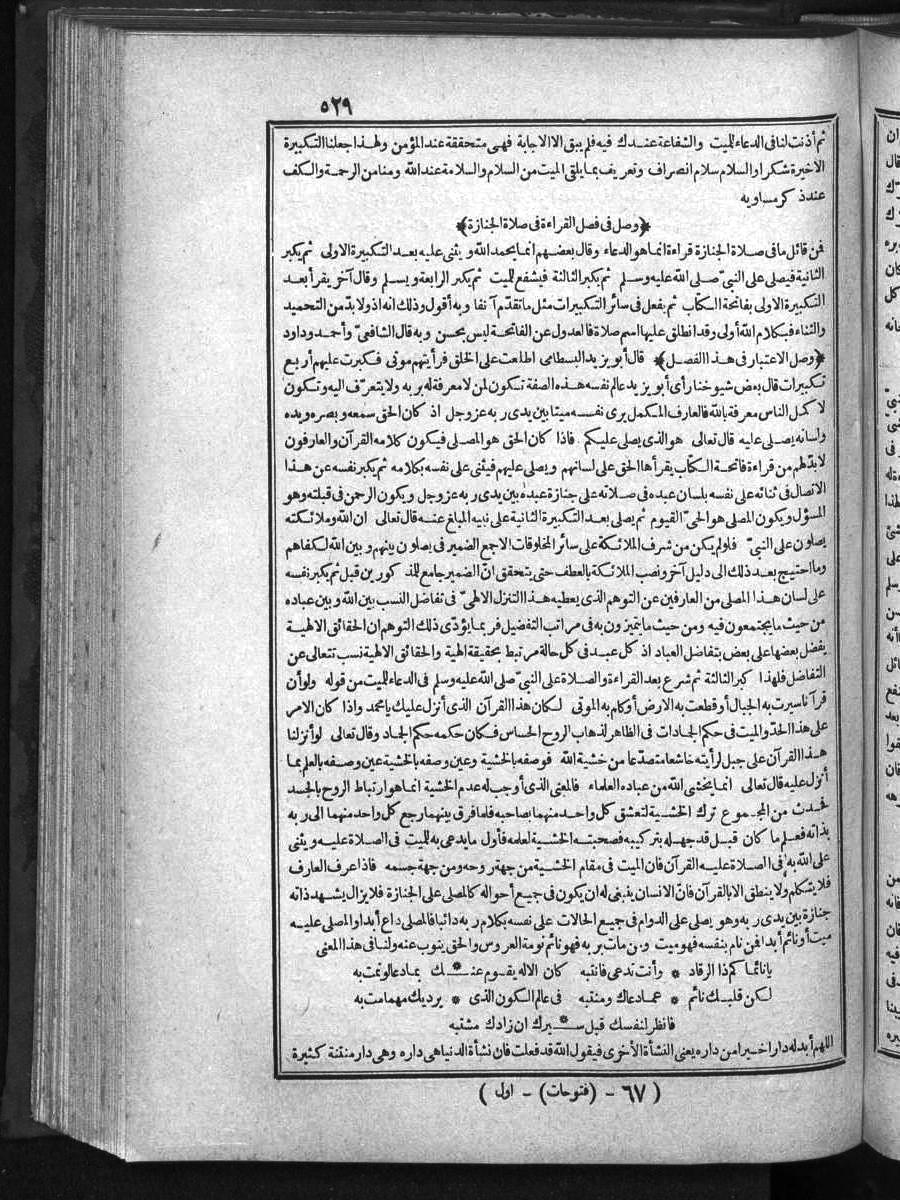 ٥٢٩
ثم أذنت لنا فى الدعاء للميت والشفاعة عندك فيه فلم يبق الا الاجابة فهى متحققة عند المؤمن ولهذا جعلنا التكبيرة
الاخيرة شكرا والسلام سلام انصراف وتعريف بما يلقى الميت من السلام والسلامة عند الله ومنا من الرحمة والكف
عن ذكر مساويه
﴿وصل فى فصل القراءة فى صلاة الجنازة﴾
فمن قائل ما فى صلاة الجنازة قراءة انما هو الدعاء وقال بعضهم انما يحمد الله ويثنى عليه بعد التكبيرة الاولى ثم يكبر
الثانية فيصلى على النبىّ صلى الله عليه وسلم ثم يكبر الثالثة فيشفع للميت ثم يكبر الرابعة ويسلم وقال آخر يقرأ بعد
التكبيرة الاولى بفاتحة الكتاب ثم يفعل فى سائر التكبيرات مثل ما تقدّم آنفا وبه أقول وذلك انه اذ ولا بدّ من التحميد
والثناء فبكلام الله أولى وقد انطلق عليها اسم صلاة فالعدول عن الفاتحة ليس بحسن وبه قال الشافعىّ وأحمد وداود
﴿وصل الاعتبار فى هذا الفصل﴾ قال أبو يزيد البسطامى اطلعت على الخلق فرأيتهم موتى فكبرت عليهم أربع
تكبيرات قال بعض شيوخنا رأى أبو يزيد عالم نفسه هذه الصفة تكون لمن لا معرفة له بربه ولا يتعرّف اليه وتكون
لاكمل الناس معرفة بالله فالعارف المكمل يرى نفسه ميتا بين يدى ربه عز وجل اذ كان الحق سمعه وبصره ويده
ولسانه يصلى عليه قال تعالى هو الذى يصلى عليكم فاذا كان الحق هو المصلى فيكون كلامه القرآن والعارفون
لا بدّ لهم من قراءة فاتحة الكتاب يقرأها الحق على لسانهم ويصلى عليهم فيثنى على نفسه بكلامه ثم يكبر نفسه عن هذا
الاتصال فى ثنائه على نفسه بلسان عبده فى صلاته على جنازة عبده بين يدى ربه عز وجل ويكون الرحمن فى قبلته وهو
المسؤل ويكون المصلى هو الحىّ القيوم ثم يصلى بعد التكبيرة الثانية على نبيه المبلغ عنه قال تعالى ان الله وملائكته
يصلون على النبىّ فلو لم يكن من شرف الملائكة على سائر المخلوقات الا جمع الضمير فى يصلون بينهم وبين الله لكفاهم
وما احتيج بعد ذلك الى دليل آخر ونصب الملائكة بالعطف حتى يتحقق انّ الضمير جامع للمذكورين قبل ثم يكبر نفسه
على لسان هذا المصلى من العارفين عن التوهم الذى يعطيه هذا التنزل الالهىّ فى تفاضل النسب بين الله وبين عباده
من حيث ما يجتمعون فيه ومن حيث ما يتميزون به فى مراتب التفضيل فربما يؤدّى ذلك التوهم ان الحقائق الالهية
يفضل بعضها على بعض بتفاضل العباد اذ كل عبد فى كل حالة مرتبط بحقيقة الهية والحقائق الالهية نسب تتعالى عن
التفاضل فلهذا كبر الثالثة ثم شرع بعد القراءة والصلاة على النبىّ صلى الله عليه وسلم فى الدعاء للميت من قوله ولو أن
قرآنا سيرت به الجبال أو قطعت به الارض أو كلم به الموتى لكان هذا القرآن الذى أنزل عليك يا محمد واذا كان الامر
على هذا الحدّ والميت فى حكم الجمادات فى الظاهر لذهاب الروح الحساس فكان حكمه حكم الجماد وقال تعالى لو أنزلنا
هذا القرآن على جبل لرأيته خاشعا متصدّعا من خشية الله فوصفه بالخشية وعين وصفه بالخشية عين وصفه بالعلم بما
أنزل عليه قال تعالى انما يخشى الله من عباده العلماء فالمعنى الذى أوجب له عدم الخشية انما هو ارتباط الروح بالجسد
فحدث من المجموع ترك الخشية لتعشق كل واحد منهما بصاحبه فلما فرق بينهما رجع كل واحد منهما الى ربه
بذاته فعلم ما كان قبل قد جهله بتركيبه فصحبته الخشية لعلمه فأول ما يدعى به للميت فى الصلاة عليه ويثنى
على الله به فى الصلاة عليه القرآن فان الميت فى مقام الخشية من جهة روحه ومن جهة جسمه فاذا عرف العارف
فلا يتكلم ولا ينطق الا بالقرآن فانّ الانسان ينبغى له ان يكون فى جميع أحواله كالمصلى على الجنازة فلا يزال يشهد ذاته
جنازة بين يدى ربه وهو يصلى على الدوام فى جميع الحالات على نفسه بكلام ربه دائبا فالمصلى داع أبدا والمصلى عليه
ميت أو نائم أبدا فمن نام بنفسه فهو ميت ومن مات بربه فهو نائم نومة العروس والحق ينوب عنه ولنا فى هذا المعنى
يا نائما كم ذا الرقاد * وأنت تدعى فانتبه كان الاله يقوم عنك * بما دعا لو نمت به
لكن قلبك نائم * عما دعاك ومنتبه فى عالم الكون الذى * يرديك مهما مت به
فانظر لنفسك قبل سيرك * ان زادك مشتبه
اللهم أبدله دارا خيرا من داره يعنى النشأة الأخرى فيقول الله قد فعلت فان نشأة الدنيا هى داره وهى دار منتنة كثيرة
( ٦٧ - (فتوحات) - اول )